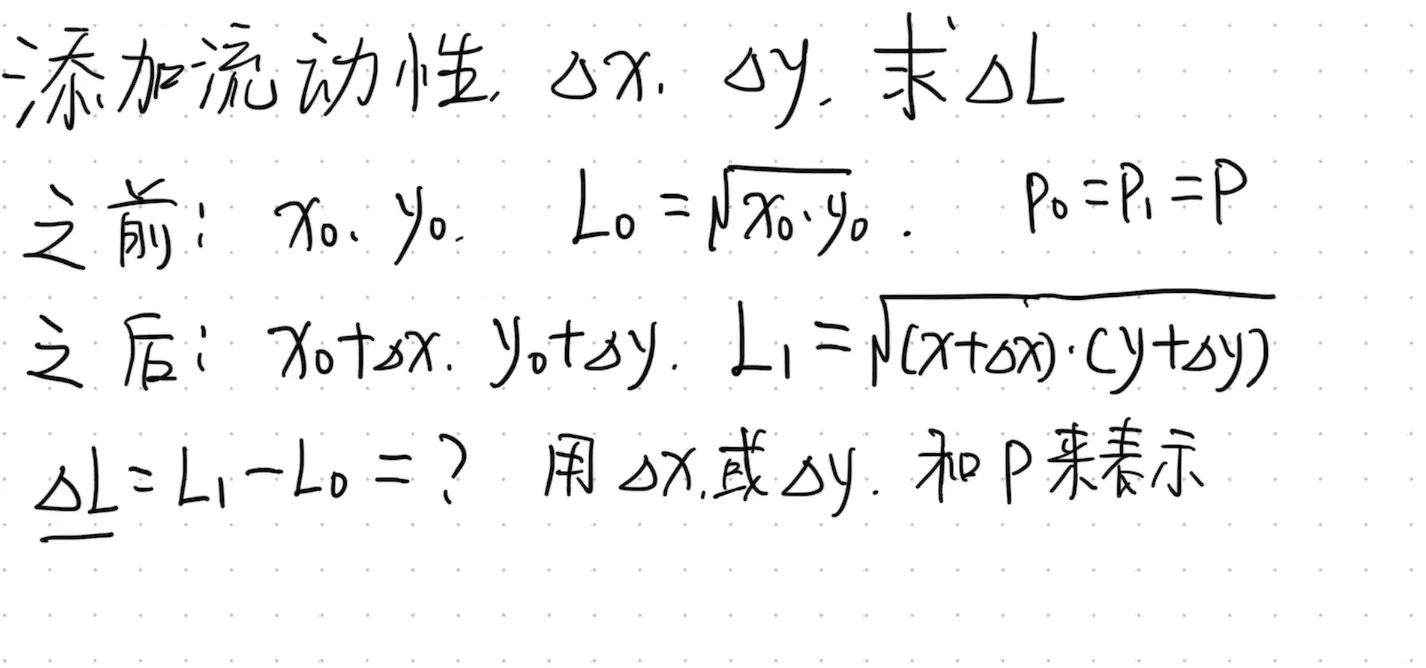 添加流动性, Δx. Δy. 求ΔL
之前: x₀. y₀. L₀ = √x₀·y₀ . P₀ = P₁ = P
之后: x₀+Δx. y₀+Δy. L₁ = √(x+Δx)·(y+Δy)
ΔL = L₁ - L₀ = ? 用Δx.或Δy. 和P来表示